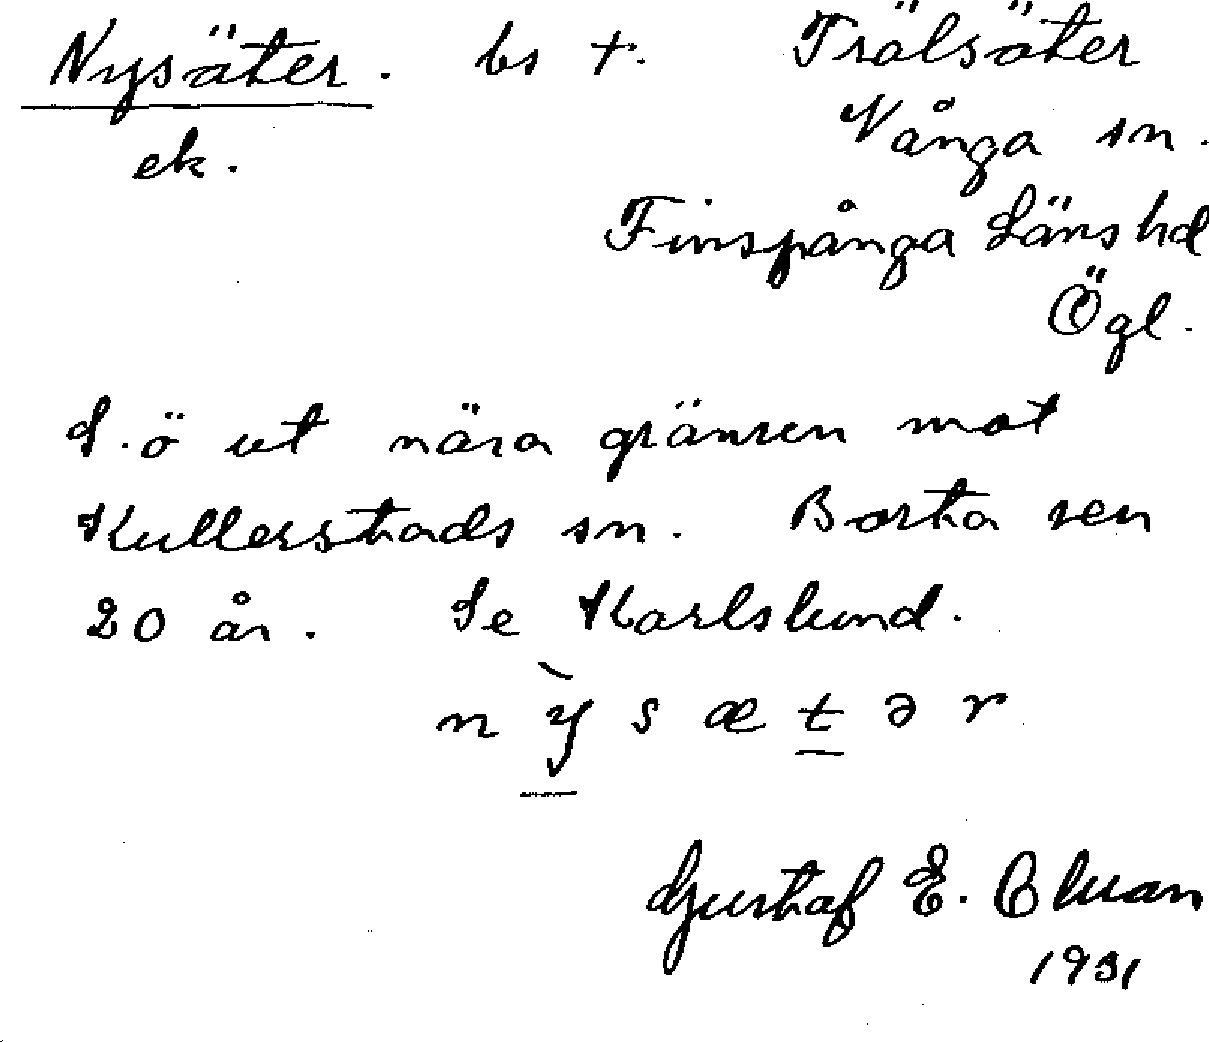 Nysäter. bs +. Trälsäter
ek. Vånga sn.
Finspånga Läns hd
Ögl.
S.ö ut nära gränsen mot
Kullerstads sn. Borta sen
20 år. Se Karlslund.
n ỳ s æ t ə r
Gustaf E. Cluan
1931